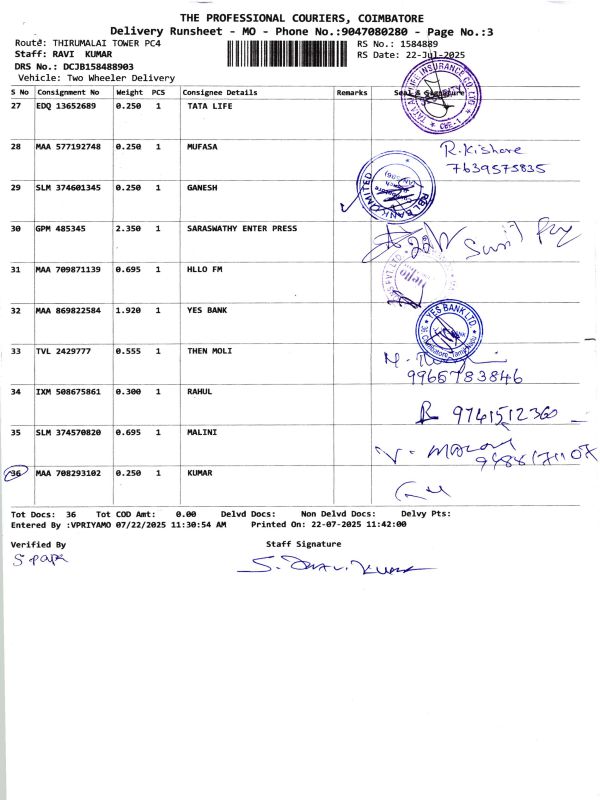 THE PROFESSIONAL COURIERS, COIMBATORE
Delivery Runsheet - MO - Phone No.:9047080280 - Page No.:3
Route: THIRUMALAI TOWER PC4 RS No.: 1584889
Staff: RAVI KUMAR RS Date: 22-Jul-2025
DRS No.: DCJB158488903
Vehicle: Two Wheeler Delivery
S No Consignment No Weight PCS Consignee Details Remarks Seal & Signature
27 EDQ 13652689 0.250 1 TATA LIFE
28 MAA 577192748 0.250 1 MUFASA R.Kishore
7639575835
29 SLM 374601345 0.250 1 GANESH RBL BANK LIMITED
30 GPM 485345 2.350 1 SARASWATHY ENTER PRESS
31 MAA 709871139 0.695 1 HLLO FM Hello
32 MAA 869822584 1.920 1 YES BANK YES BANK LTD.
33 TVL 2429777 0.555 1 THEN MOLI
9965783846
34 IXM 508675861 0.300 1 RAHUL R 9741512360
35 SLM 374570820 0.695 1 MALINI
36 MAA 708293102 0.250 1 KUMAR
Tot Docs: 36 Tot COD Amt: 0.00 Delvd Docs: Non Delvd Docs: Delvy Pts:
Entered By :VPRIYAMO 07/22/2025 11:30:54 AM Printed On: 22-07-2025 11:42:00
Verified By Staff Signature